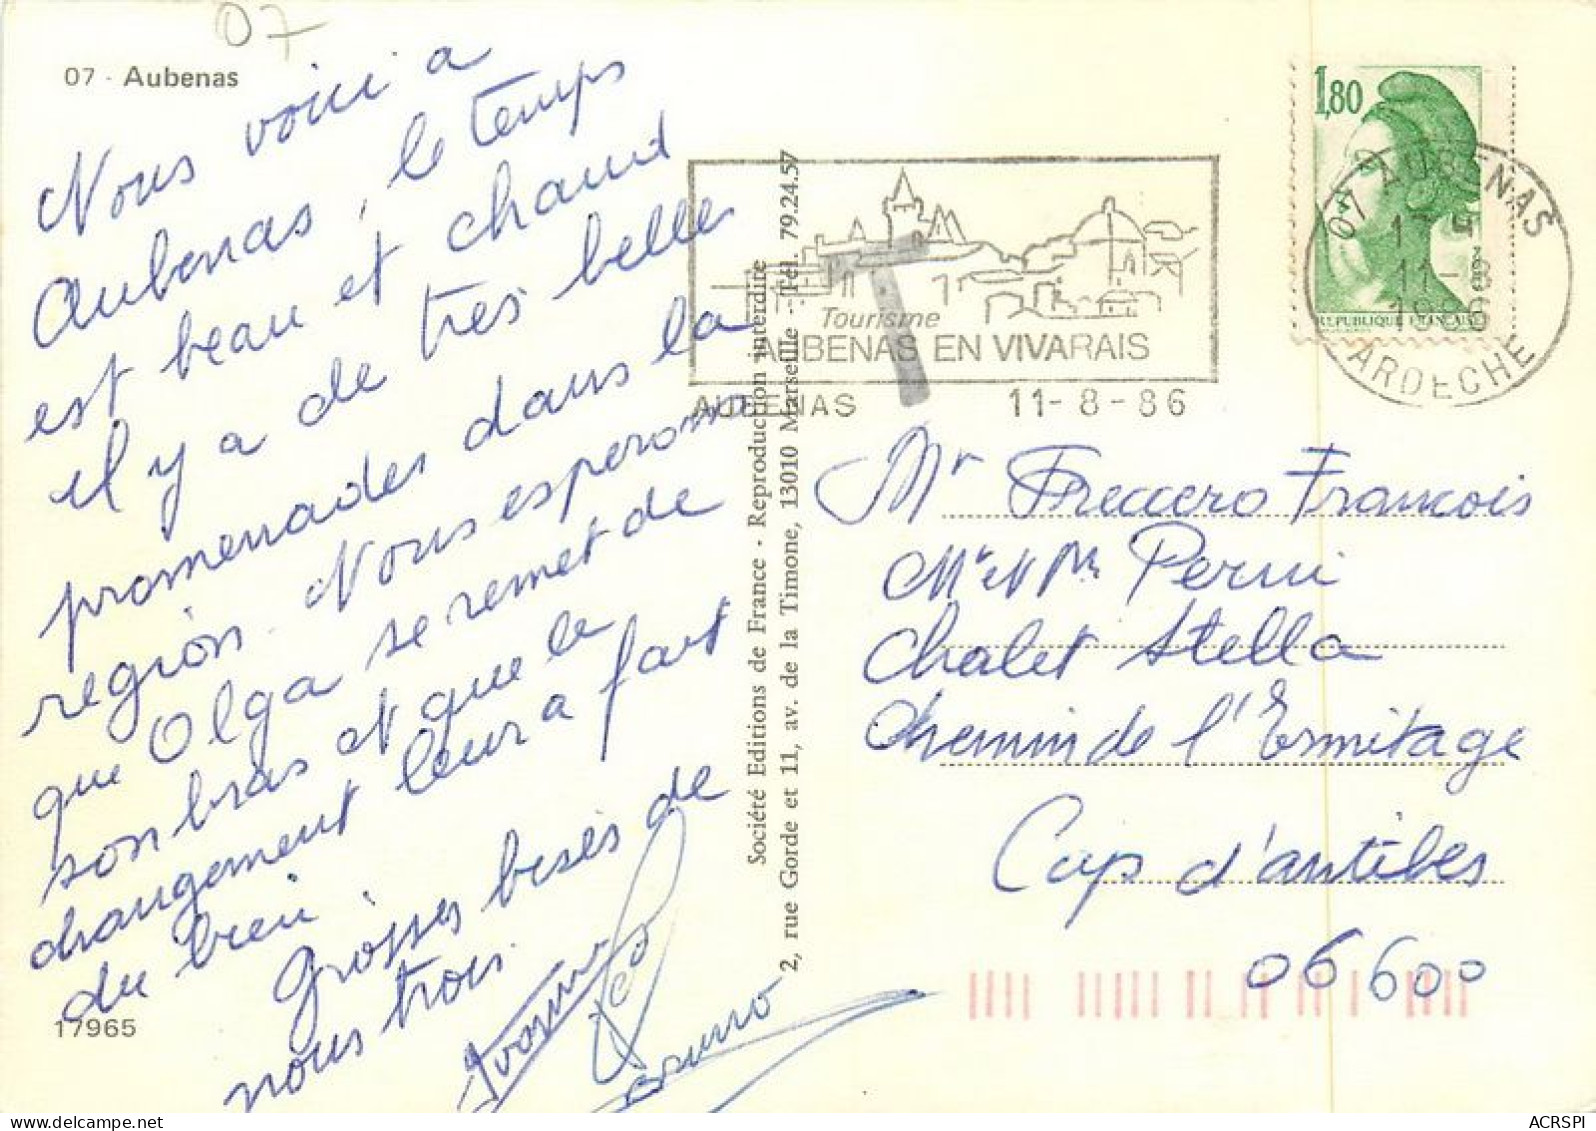 07
07 - Aubenas
Nous voici a
Aubenas, le temps
est beau et chaud
il y a de très belle
promenades dans la
région. Nous esperons
que Olga se remet de
son bras et que le
changement leur a fait
du bien
Grosses bises de
nous trois.
Bruno
17965
Société Editions de France - Reproduction interdite
2, rue Gorde et 11, av. de la Timone, 13010 Marseille - Tél. 79.24.57
Tourisme
AUBENAS EN VIVARAIS
AUBENAS 11-8-86
1,80
REPUBLIQUE FRANÇAISE
07 AUBENAS
17 H
11-8
1986
ARDECHE
Mr Freccero Francois
Mr et Mm Perui
Chalet Stella
Chemin de l'Ermitage
Cap d'antibes
06600
ACRSPI